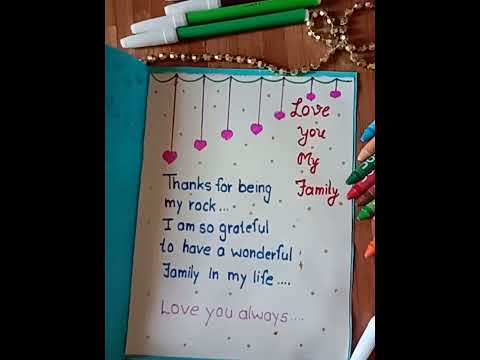 Love
you
My
Family
Thanks for being
my rock...
I am so grateful
to have a wonderful
Family In my life....
Love you always....